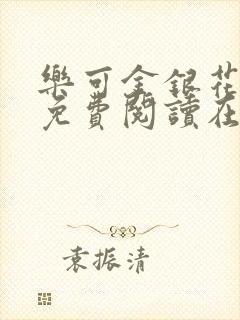 樂可金銀花
免費閱讀在
袁振清